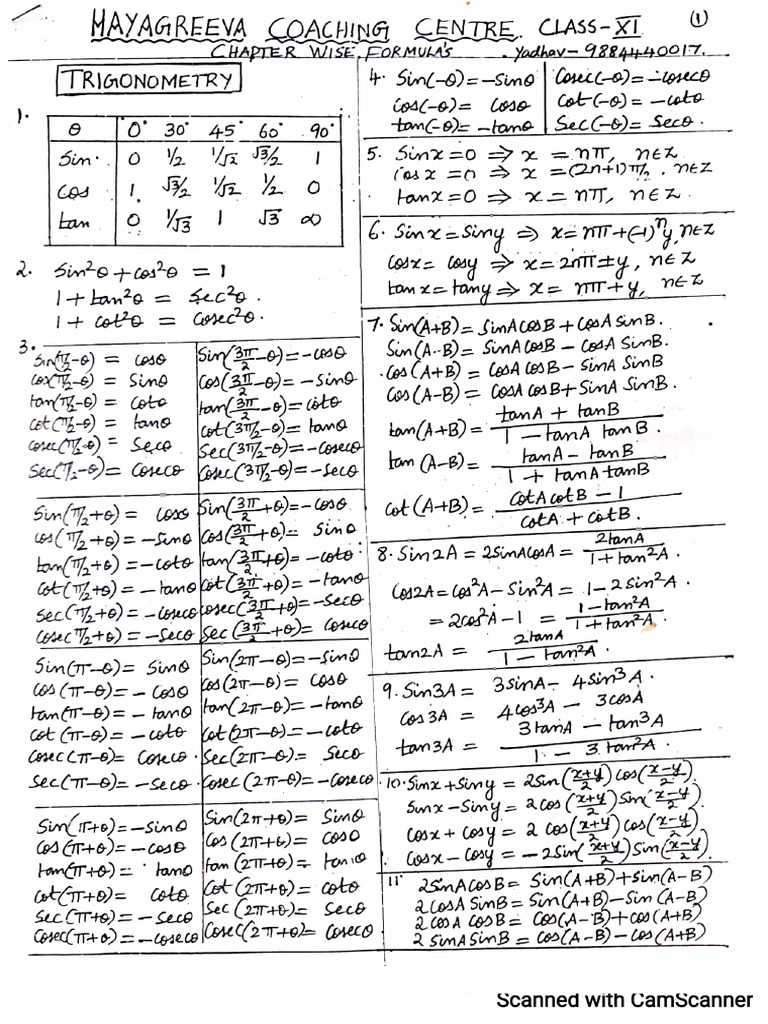 HAYAGREEVA COACHING CENTRE. CLASS-XI (1)
CHAPTER WISE FORMULA'S . Yadhav-9884440017.
TRIGONOMETRY
1.
θ 0° 30° 45° 60° 90°
Sin 0 1/2 1/√2 √3/2 1
cos 1 √3/2 1/√2 1/2 0
tan 0 1/√3 1 √3 ∞
2. Sin²θ + cos²θ = 1
1 + tan²θ = Sec²θ.
1 + cot²θ = Cosec²θ.
3.
Sin(π/2-θ) = cosθ
cos(π/2-θ) = Sinθ
tan(π/2-θ) = cotθ
cot(π/2-θ) = tanθ
cosec(π/2-θ) = Secθ
Sec(π/2-θ) = Cosecθ
Sin(3π/2-θ) = -cosθ
cos(3π/2-θ) = -Sinθ
tan(3π/2-θ) = cotθ
cot(3π/2-θ) = tanθ
Sec(3π/2-θ) = -cosecθ
Cosec(3π/2-θ) = -Secθ
Sin(π/2+θ) = cosθ
cos(π/2+θ) = -Sinθ
tan(π/2+θ) = -cotθ
cot(π/2+θ) = -tanθ
sec(π/2+θ) = -cosecθ
cosec(π/2+θ) = -Secθ
Sin(3π/2+θ) = -cosθ
cos(3π/2+θ) = Sinθ
tan(3π/2+θ) = -cotθ
cot(3π/2+θ) = -tanθ
cosec(3π/2+θ) = -Secθ
Sec(3π/2+θ) = Cosecθ
Sin(π-θ) = Sinθ
cos(π-θ) = -cosθ
tan(π-θ) = -tanθ
cot(π-θ) = -cotθ
Cosec(π-θ) = Cosecθ
Sec(π-θ) = -Secθ
Sin(2π-θ) = -Sinθ
cos(2π-θ) = cosθ
tan(2π-θ) = -tanθ
cot(2π-θ) = -cotθ
Sec(2π-θ) = Secθ
Cosec(2π-θ) = -Cosecθ
Sin(π+θ) = -Sinθ
cos(π+θ) = -cosθ
tan(π+θ) = tanθ
cot(π+θ) = cotθ
Sec(π+θ) = -Secθ
Cosec(π+θ) = -Cosecθ
Sin(2π+θ) = Sinθ
cos(2π+θ) = cosθ
tan(2π+θ) = tanθ
cot(2π+θ) = cotθ
Sec(2π+θ) = Secθ
Cosec(2π+θ) = Cosecθ
4. Sin(-θ) = -Sinθ Cosec(-θ) = -cosecθ
cos(-θ) = cosθ cot(-θ) = -cotθ
tan(-θ) = -tanθ Sec(-θ) = Secθ.
5. Sinx=0 ⇒ x = nπ, n∈Z
cosx = 0 ⇒ x = (2n+1)π/2, n∈Z
tanx=0 ⇒ x = nπ, n∈Z.
6. Sinx=Siny ⇒ x=nπ+(-1)ⁿy, n∈Z
cosx = cosy ⇒ x=2nπ±y, n∈Z
tanx=tany ⇒ x = nπ+y, n∈Z
7. Sin(A+B) = SinACosB + CosA SinB.
Sin(A-B) = SinACosB - CosA SinB.
Cos(A+B) = CosA CosB - SinA SinB
Cos(A-B) = CosA CosB + SinA SinB.
tan(A+B) = (tanA + tanB)/(1 - tanA tanB).
tan(A-B) = (tanA - tanB)/(1 + tanA tanB)
cot(A+B) = (CotA cotB - 1)/(cotA + cotB).
8. Sin2A = 2SinACosA = 2tanA/(1+tan²A).
Cos2A = Cos²A - Sin²A = 1-2Sin²A.
= 2Cos²A-1 = (1-tan²A)/(1+tan²A).
tan2A = 2tanA/(1-tan²A).
9. Sin3A = 3SinA - 4Sin³A.
Cos3A = 4Cos³A - 3CosA
tan3A = (3tanA - tan³A)/(1 - 3tan²A).
10. Sinx+Siny = 2Sin((x+y)/2) cos((x-y)/2).
Sinx-Siny = 2cos((x+y)/2) Sin((x-y)/2).
Cosx+cosy = 2 cos((x+y)/2) cos((x-y)/2).
Cosx-cosy = -2Sin((x+y)/2) Sin((x-y)/2).
11 2SinACosB = Sin(A+B)+Sin(A-B)
2CosASinB = Sin(A+B)-Sin(A-B)
2CosA CosB = Cos(A-B)+Cos(A+B)
2SinASinB = Cos(A-B) - Cos(A+B)
Scanned with CamScanner